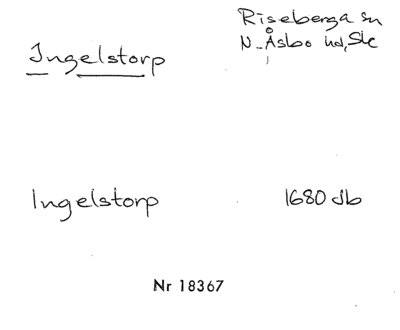 Riseberga sn
Ingelstorp N. Åsbo hd, Sk
Ingelstorp 1680 Jb
Nr 18367